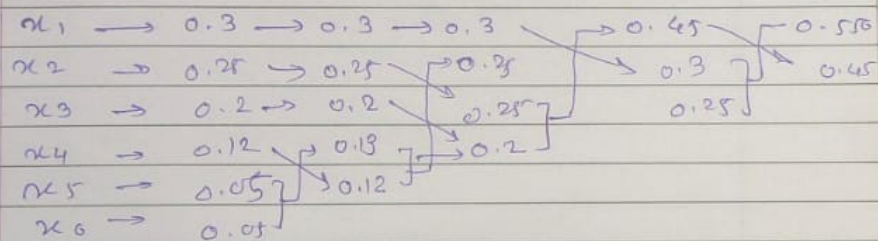 x1 → 0.3 → 0.3 → 0.3 → 0.45 0.550
x2 → 0.25 → 0.25 0.25 0.3 0.45
x3 → 0.2 → 0.2 0.25 0.25
x4 → 0.12 0.13 0.2
x5 → 0.05 0.12
x6 → 0.05